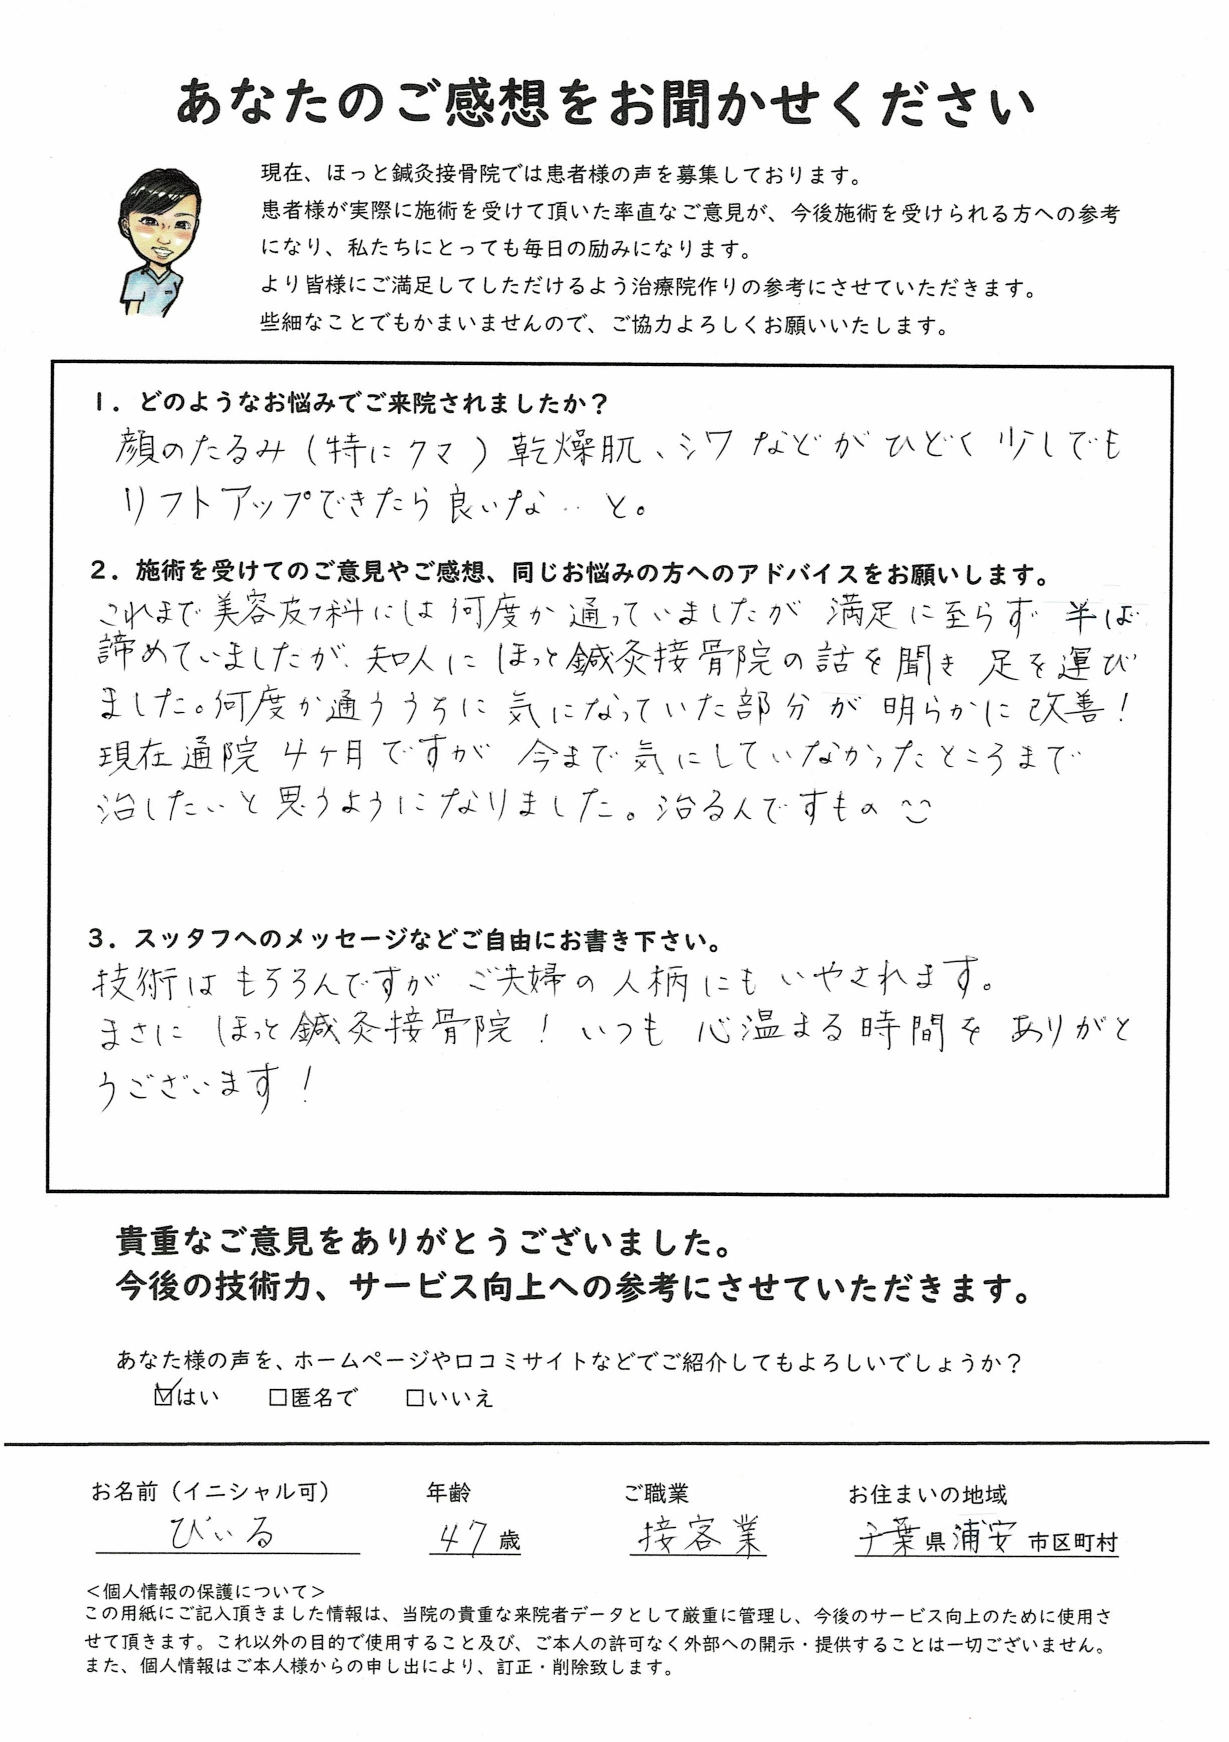 あなたのご感想をお聞かせください
現在、ほっと鍼灸接骨院では患者様の声を募集しております。
患者様が実際に施術を受けて頂いた率直なご意見が、今後施術を受けられる方への参考
になり、私たちにとっても毎日の励みになります。
より皆様にご満足してしただけるよう治療院作りの参考にさせていただきます。
些細なことでもかまいませんので、ご協力よろしくお願いいたします。
1．どのようなお悩みでご来院されましたか？
顔のたるみ（特にクマ）乾燥肌、シワなどがひどく少しでも
リフトアップできたら良いな‥と。
2．施術を受けてのご意見やご感想、同じお悩みの方へのアドバイスをお願いします。
これまで美容皮フ科には何度か通っていましたが満足に至らず半ば
諦めていましたが、知人にほっと鍼灸接骨院の話を聞き足を運び
ました。何度か通ううちに気になっていた部分が明らかに改善！
現在通院4ヶ月ですが今まで気にしていなかったところまで
治したいと思うようになりました。治るんですもの
3．スッタフへのメッセージなどご自由にお書き下さい。
技術はもちろんですがご夫婦の人柄にもいやされます。
まさにほっと鍼灸接骨院！いつも心温まる時間をありがと
うございます！
貴重なご意見をありがとうございました。
今後の技術力、サービス向上への参考にさせていただきます。
あなた様の声を、ホームページや口コミサイトなどでご紹介してもよろしいでしょうか？
☑はい　□匿名で　□いいえ
お名前（イニシャル可）　年齢　ご職業　お住まいの地域
びぃる　47歳　接客業　千葉県浦安市区町村
＜個人情報の保護について＞
この用紙にご記入頂きました情報は、当院の貴重な来院者データとして厳重に管理し、今後のサービス向上のために使用さ
せて頂きます。これ以外の目的で使用すること及び、ご本人の許可なく外部への開示・提供することは一切ございません。
また、個人情報はご本人様からの申し出により、訂正・削除致します。